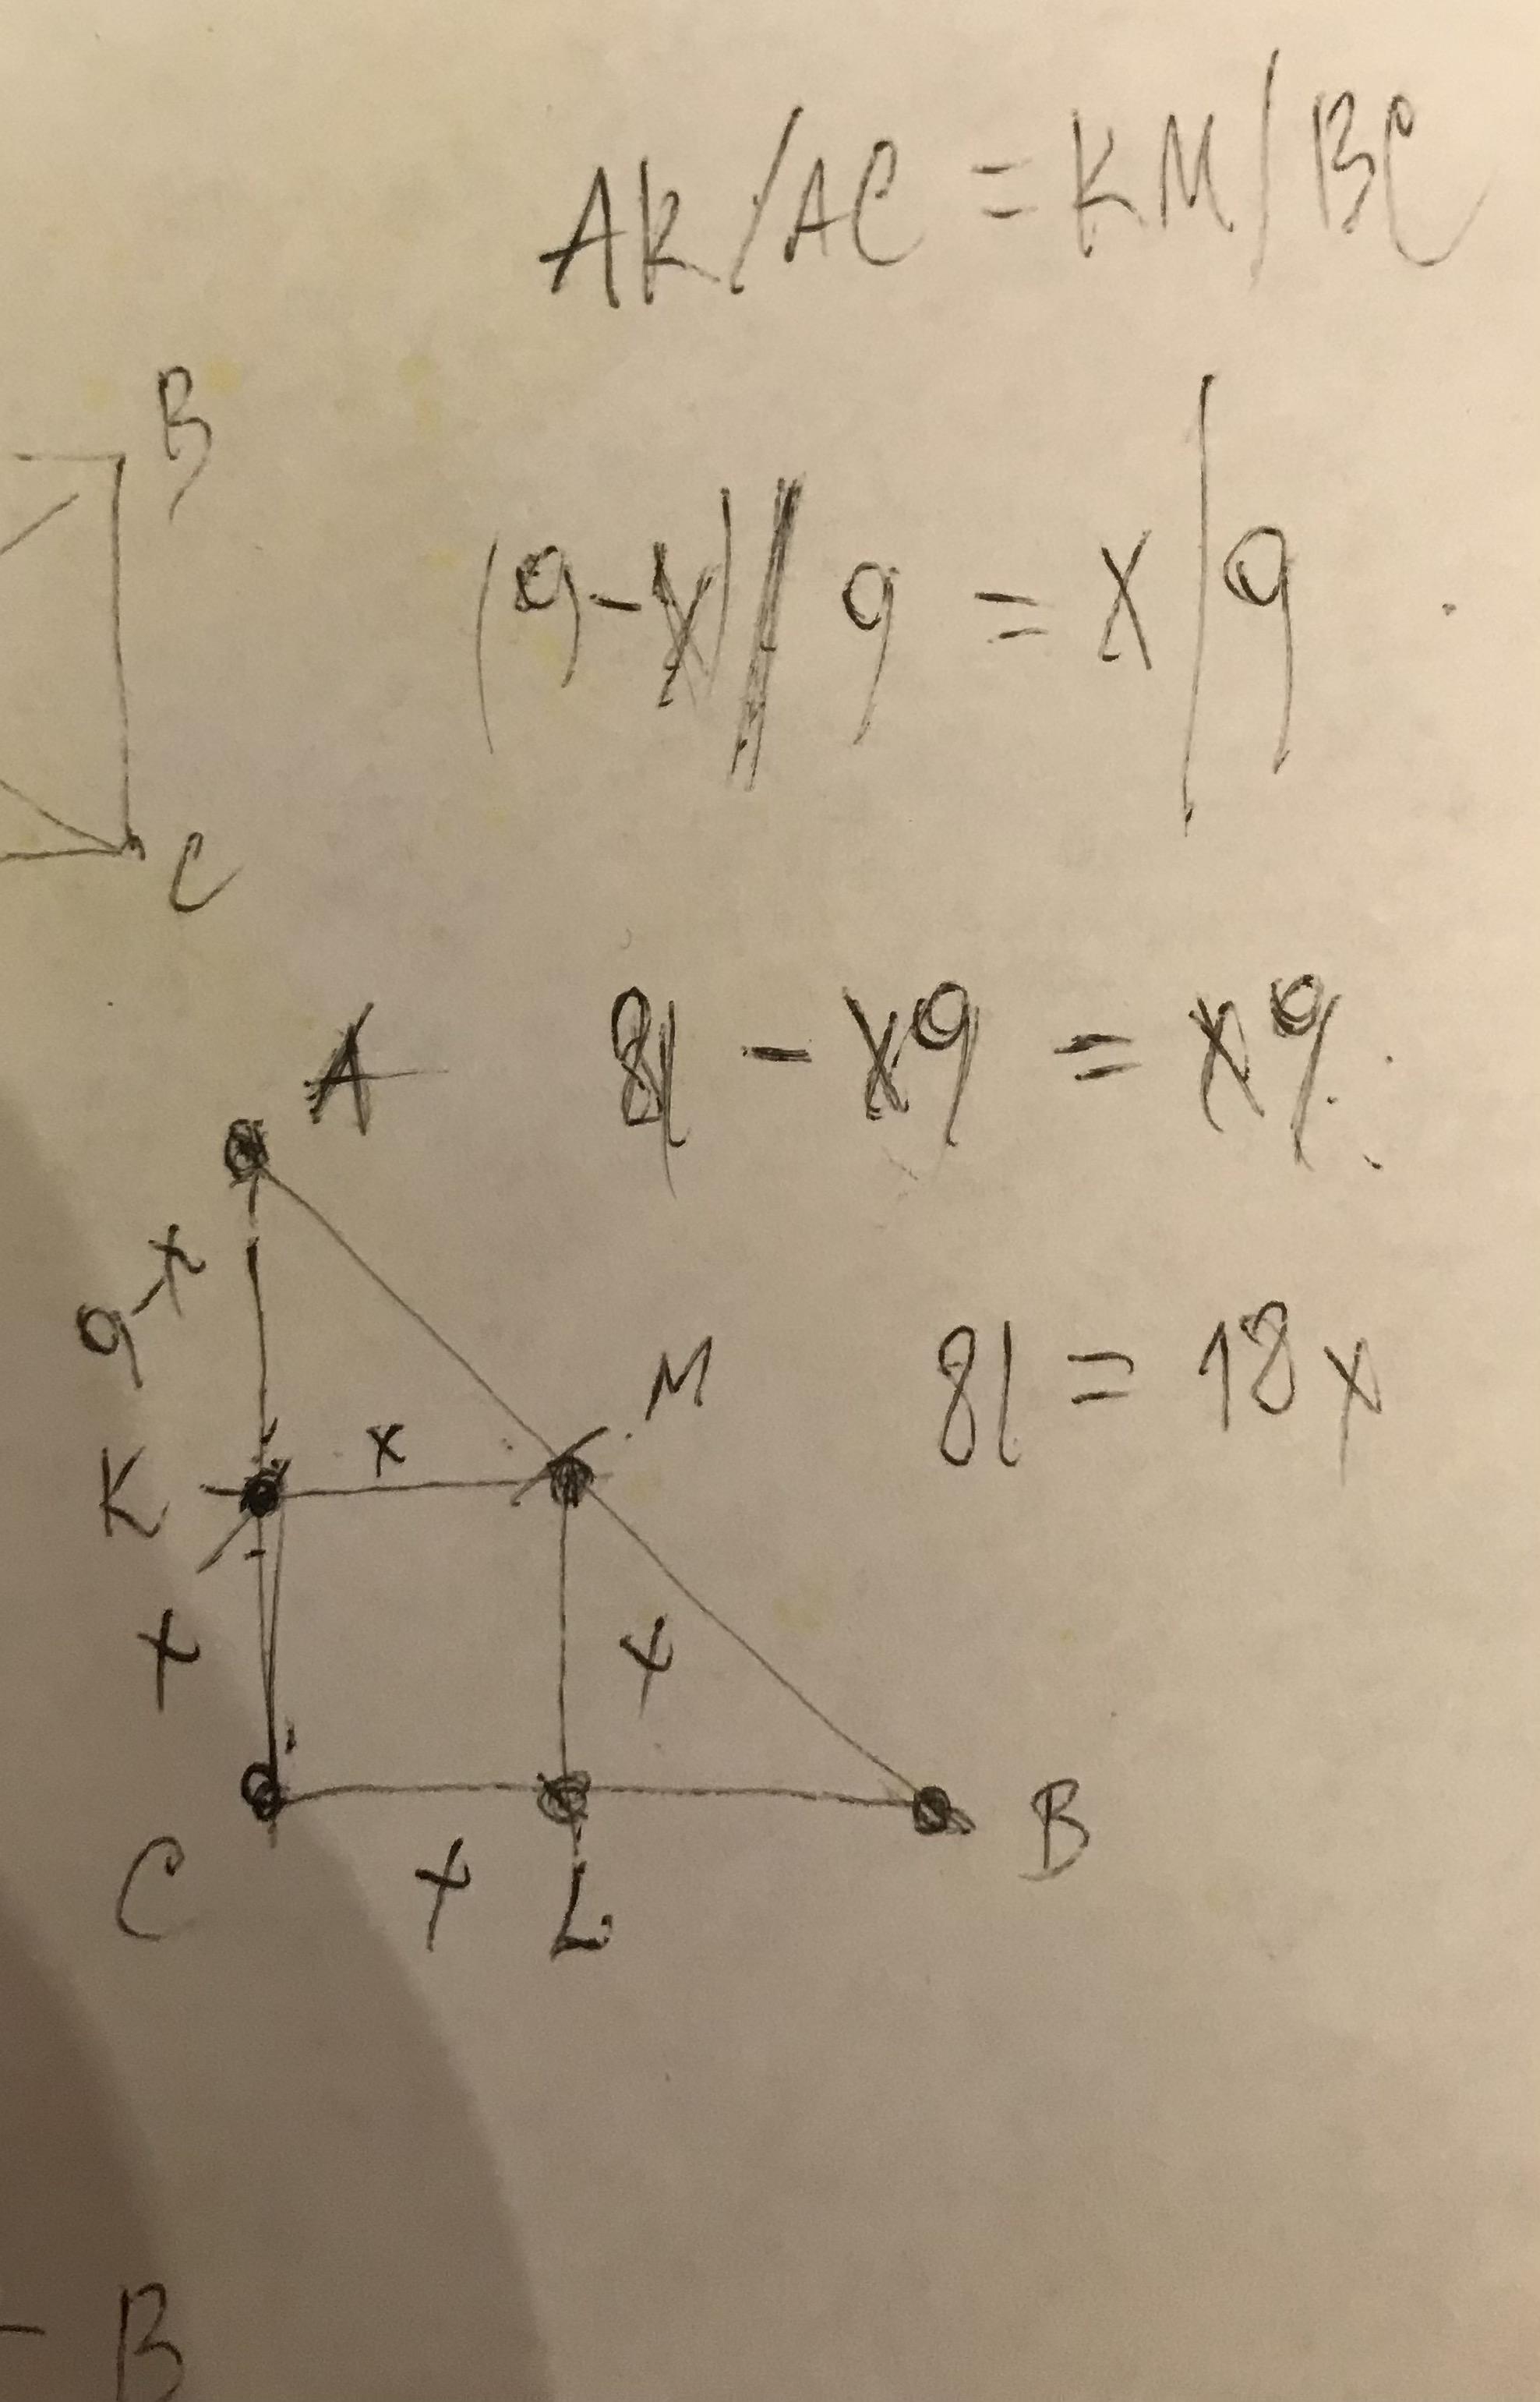 AK/AC = KM/BC
B
(9-x)/9 = x/9
C
A
81 - x9 = x9
9-x
M
81 = 18x
K
x
x
x
C
x
L
B
- B